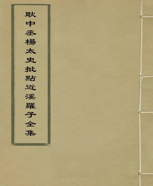 耿中丞楊太史批點近溪羅子全集